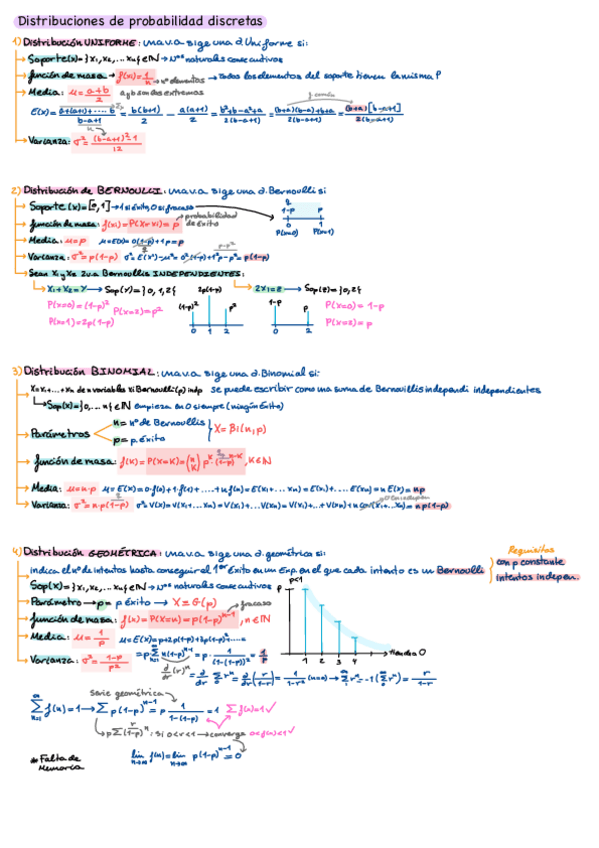 Distribuciones de probabilidad discretas
1) Distribución UNIFORME: una v.a sige una d.Uniforme si:
Soporte(x)={x₁, x₂, ... xₙ{∈ℕ → Nºs naturales consecutivos
función de masa → f(xi)=1/n → nº elementos → todos los elementos del soporte tienen la misma P
Media: μ=a+b/2 a y b son dos extremos
E(x)=
Varianza: σ²=(b-a+1)²-1/12
2) Distribución de BERNOULLI: una v.a sige una d.Bernoulli si
Soporte(x)=[0,1] → 1 si éxito, 0 si fracaso
función de masa: f(xi)=P(X=xi)=p → probabilidad de éxito
1-p p
0 1
P(x=0) P(x=1)
Media: μ=p μ=E(x)=0(1-p)+1p=p
Varianza: σ²=p(1-p) σ²=E(x²)-μ²=0²(1-p)+1²p-p²=p(1-p)
p-p²
Sean X₁ y X₂ 2 v.a Bernoullis INDEPENDIENTES:
X₁+X₂=Y → Sop(Y)={0,1,2{ 2X₁=Z → Sop(Z)={0,2{
P(x=0)=(1-p)² P(x=2)=p² (1-p)² 2p(1-p) p² 1-p p P(x=0)=1-p
P(x=1)=2p(1-p) 0 1 2 0 2 P(x=2)=p
3) Distribución BINOMIAL: una v.a sige una d.Binomial si:
X=x₁+...+xₙ de n variables xi Bernoulli(p) indp se puede escribir como una suma de Bernouillis independi independientes
Sop(x)={0,... n{∈ℕ empieza en 0 siempre (ningún éxito)
Parámetros n=nº de Bernoullis p=p.éxito X=Bi(n,p)
función de masa: f(K)=P(X=K)=(n K) p^K (1-p)^n-K, K∈ℕ
Media: μ=n·p μ=E(x)=0·f(0)+1·f(1)+....+n f(n)=E(x₁+... xₙ)=E(x₁)+.... E(xₙ)=n E(x)=np
Varianza: σ²=n·p(1-p) σ²=V(x)=V(x₁+... xₙ)=V(x₁)+... V(xₙ)=V(x₁)+...+V(xₙ)+n cov(x₁+...xₙ)=np(1-p)
4) Distribución GEOMÉTRICA: una v.a sige una d.geométrica si:
indica el nº de intentos hasta conseguir el 1er Éxito en un Exp. en el que cada intento es un Bernoulli
Requisitos
con p constante
intentos indepen.
Sop(x)={x₁, x₂, ... xₙ{∈ℕ → Nºs naturales consecutivos
Parámetro → p= p éxito → X≡G(p)
función de masa: f(n)=P(X=n)=p(1-p)^n-1, n∈ℕ fracaso
p p<1
1 2 3 4
Media: μ=1/p μ=E(x)=p+2p(1-p)+3p(1-p)²+....
Varianza: σ²=1-p/p²
serie geométrica
Σ f(n)=1 → Σ p(1-p)^n-1=p 1/1-(1-p)=1 Σ f(n)=1 ✓
si 0<r<1 → converge 0<f(n)<1 ✓
* Falta de Memoria
lim f(n)=lim p(1-p)^n-1=0
n→∞ n→∞